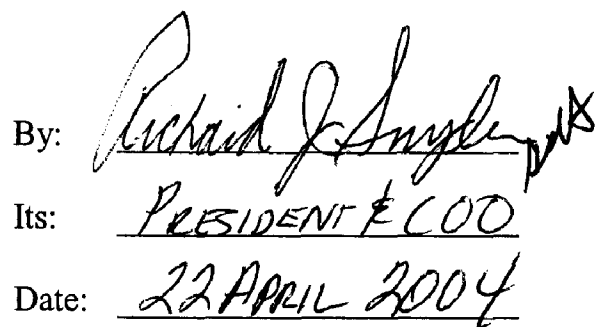 By: Richard J. Snyder
Its: PRESIDENT & COO
Date: 22 APRIL 2004